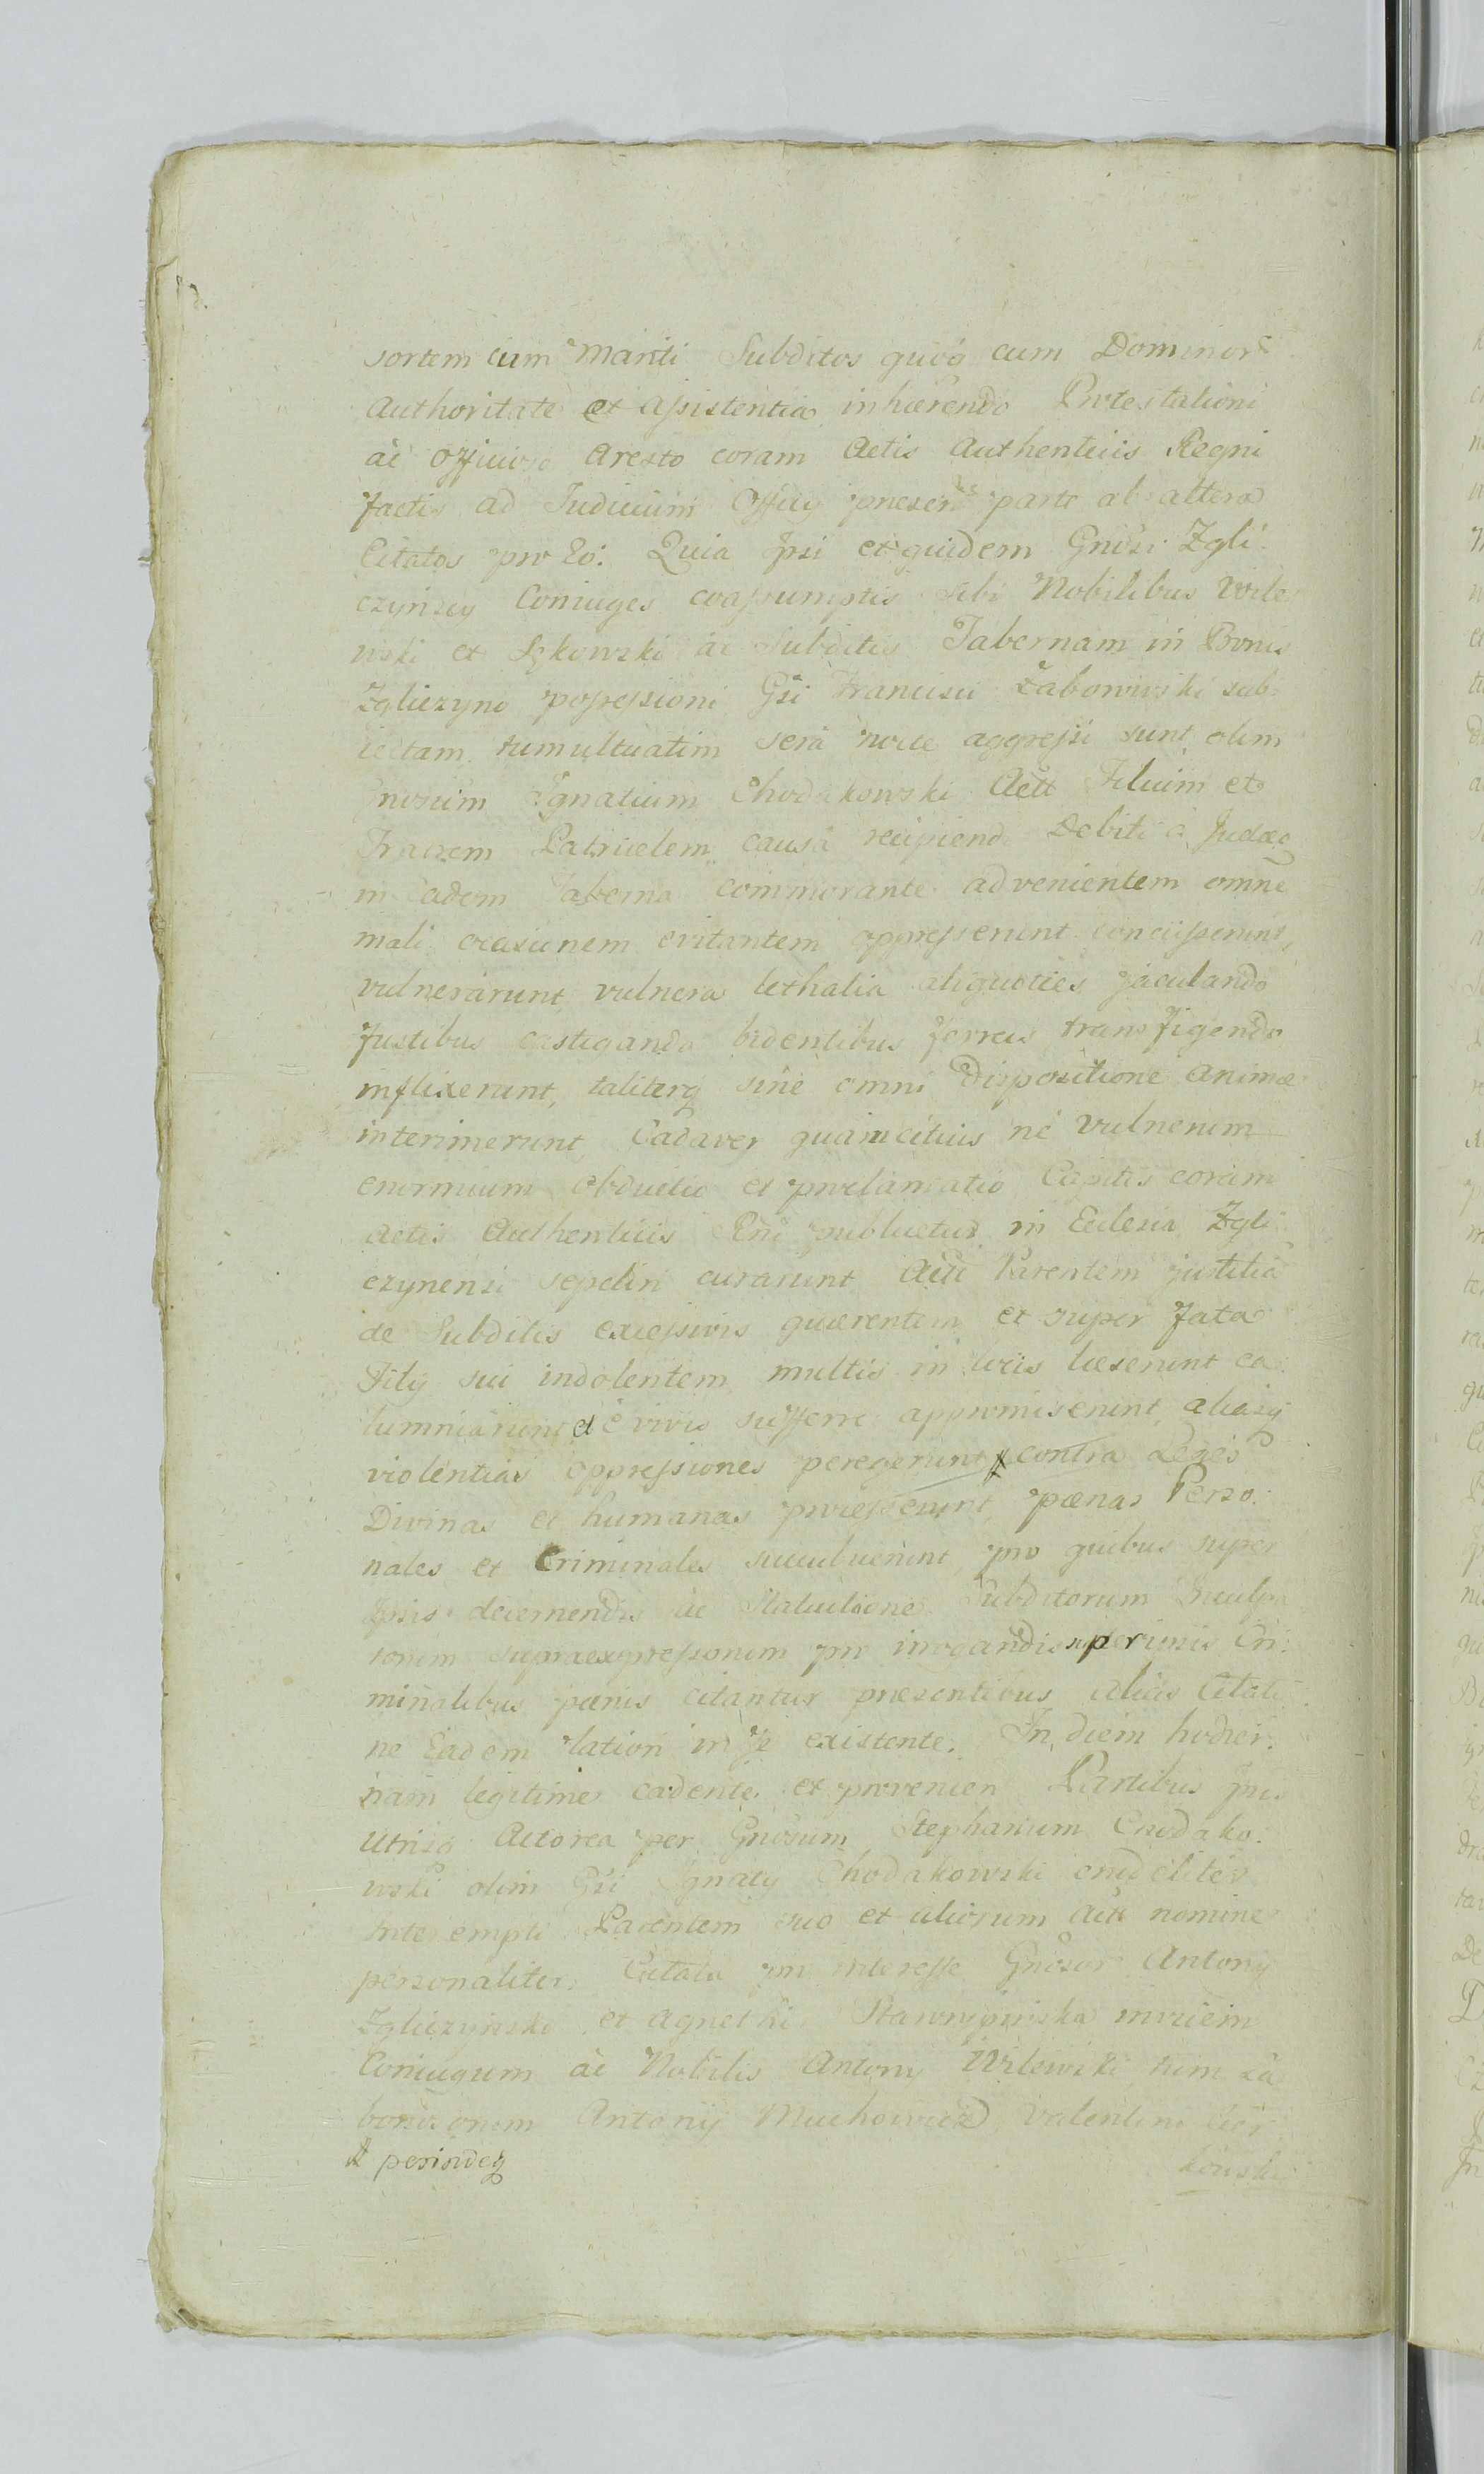 sortem cum Mariti Subditos quoq cum Dominor
Authoritate et assistentia inhærendo Protestationi
ac officioso Aresto coram Actis Authenticis Regni
factis ad Judicium Officij præsen parte ab altera
Citatos pro Eo: Quia Ipsi et quidem Gnosi Zgli
czynscy Coniuges coassumptis sibi Nobilibus Wile
wski et ac Subditis Tabernam in Bonis
Zgliczyno possessioni Gsi Francisci Zabowski sub=
iectam, tumultuatim sera nocte aggressi sunt olim
Gnosum Ignatium Chodakowski Actt Filium et
Fratrem Patruelem causa recipiend Debiti a Judæo
in eadem Taberna commorante advenientem omne
mali occasionem evitantem oppresserunt concusserunt,
vulnerarunt, vulnera lethalia aliquoties jaculando
fustibus castigando bidentibus ferreis transfigendo
inflixerunt, taliterq sine omni Dispositione animæ
interimerunt, Cadaver quamcitius ne Vulnerum
enormium obductio et proclamatio Capitis coram
Actis Authenticis Rni in Ecclesia Zgli
czynensi sepeliri curarunt Actt Parentem justitia
de Subditis excessivis quærentem et super fata
Filij sui indolentem multis in locis læserunt ca
lumniarunt et è vivis sufferre appromiserunt aliasq
violentias oppressiones peregerunt # contra Leges
Divinas et humanas processerunt pœnas Perso:
nales et Criminales succubuerunt, pro quibus super
Ipsis decernendis ac Statuitione Subditorum Inculpa
torum supraexpressorum pro irrogandis super ipsis Cri:
minalibus pœnis citantur præsentibus Citati
ne Eadem lation in se existente. In diem hodier:
nam legitime cadente et provenien Partibus
Utrisq Actorea per Gnosum Stephanum Chodako:
wski olim Gsi Ignatij Chodakowski crudeliter
Interempti Parentem suo et aliorum Actt nomine
personaliter. Citata pro interesse Gnosor Antonij
Zgliczynski et Agnethi invicem
Coniugum ac Nobilis Antony Wilewski, tum La
boriosorum Antonij Muchowicz Valentini
# perindeq
kowski